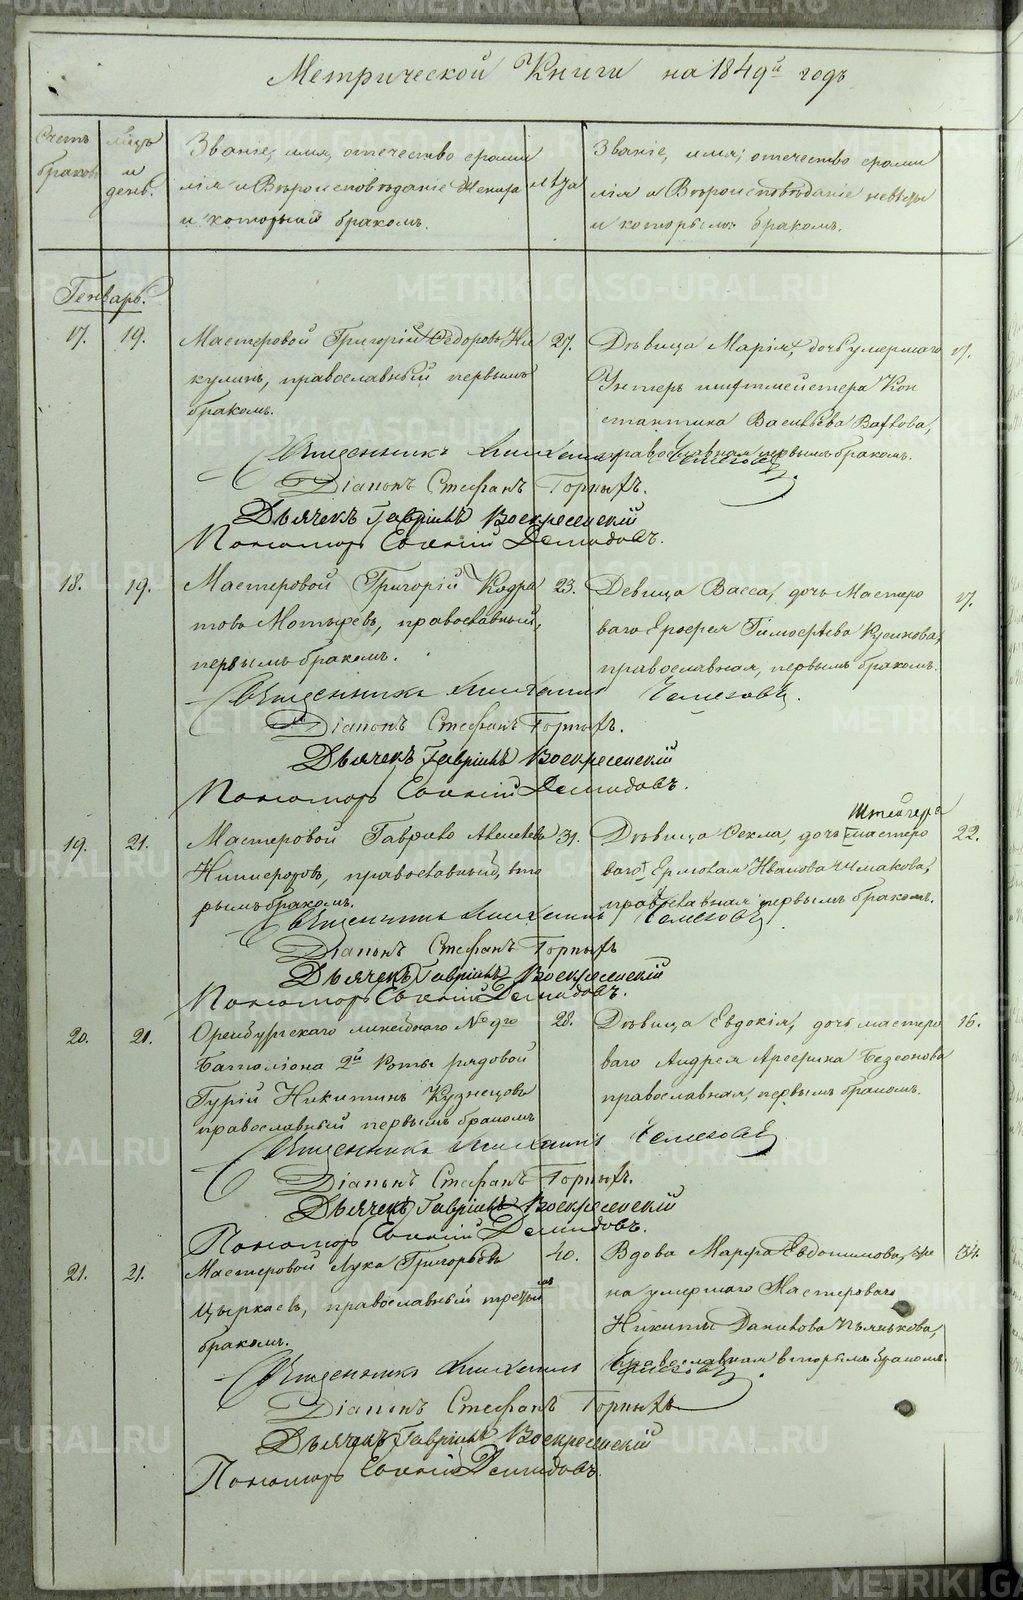 Метрической Книги на 1849й годъ
Счетъ браковъ
Мѣсяцъ
и
день.
Званіе, имя, отечество фами
лія и Вѣроисповѣданіе Жениха
и которымъ бракомъ.
лѣта
Званіе, имя, отечество фами
лія и Вѣроисповѣданіе невѣсты
и которымъ бракомъ.
Генварь.
17. 19. Мастеровой Григорій Ѳедоровъ Ни 27. Дѣвица Марія, дочь умершаго 17.
кулинъ, православный первымъ Унтеръ шихтмейстера Кон
бракомъ. стантина Васильева
православная первымъ бракомъ.
Священникъ Михаилъ
Діаконъ Стефанъ Горныхъ.
Дьячекъ Гавріилъ Воскресенскій
Пономарь Демидовъ.
18. 19. Мастеровой Григорій Кодра 23. Девица Васса, дочь Мастеро 17.
товъ Мотыревъ, православный, ваго Ерофея Тимофѣева
первымъ бракомъ. православная, первымъ бракомъ.
Священникъ Михаилъ
Діаконъ Стефанъ Горныхъ.
Дьячекъ Гавріилъ Воскресенскій
Пономарь Демидовъ.
Штейгера
19. 21. Мастеровой Гаврило 31. Дѣвица Ѳекла, дочь мастеро 22.
православный, вто ваго Ермолая Иванова
рымъ бракомъ. православная первымъ бракомъ.
Священникъ Михаилъ
Діаконъ Стефанъ Горныхъ
Дьячекъ Гавріилъ Воскресенскій
Пономарь Демидовъ.
20. 21. Оренбургскаго линейнаго № 9го 28. Дѣвица Евдокія, дочь мастеро 16.
Баталіона 2й Роты рядовой ваго Андрея
Гурій Никитинъ Кузнецовъ православная, первымъ бракомъ.
православный первымъ бракомъ
Священникъ Михаилъ
Діаконъ Стефанъ Горныхъ.
Дьячекъ Гавріилъ Воскресенскій
Пономарь Демидовъ.
21. 21. Мастеровой Лука Григорьевъ 40. Вдова Марфа Евдокимова, же 34.
Цыркаевъ, православный третьимъ на умершаго Мастероваго
бракомъ. Никиты Данилова Пьянкова,
православная вторымъ бракомъ.
Священникъ Михаилъ
Діаконъ Стефанъ Горныхъ
Дьячекъ Гавріилъ Воскресенскій
Пономарь Демидовъ.
METRIKI.GASO-URAL.RU